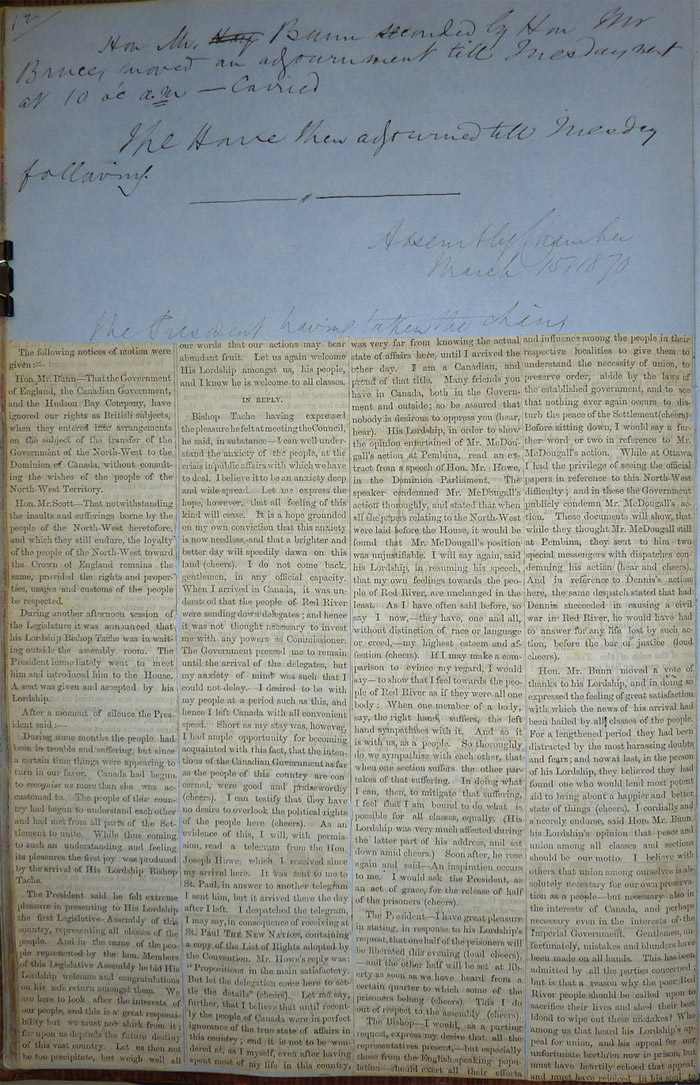 12
Hon Mr. Bunn seconded by Hon Mr
Bruce, moved an adjournment till Tuesday next
at 10 oc a.m — Carried
The House then adjourned till Tuesday
following.
Assembly Chamber
March 15, 1870
The President having taken the chair
The following notices of motion were
given:—
Hon. Mr. Bunn—That the Government
of England, the Canadian Government,
and the Hudson Bay Company, have
ignored our rights as British subjects,
when they entered into arrangements
on the subject of the transfer of the
Government of the North-West to the
Dominion of Canada, without consult-
ing the wishes of the people of the
North-West Territory.
Hon. Mr. Scott—That notwithstanding
the insults and sufferings borne by the
people of the North-West heretofore,
and which they still endure, the loyalty
of the people of the North-West toward
the Crown of England remains the
same, provided the rights and proper-
ties, usages and customs of the people
be respected.
During another afternoon session of
the Legislature it was announced that
his Lordship Bishop Tache was in wait-
ing outside the assembly room. The
President immediately went to meet
him and introduced him to the House.
A seat was given and accepted by his
Lordship.
After a moment of silence the Pres-
ident said:—
During some months the people had
been in trouble and suffering, but since
a certain time things were appearing to
turn in our favor. Canada had begun
to recognise us more than she was ac-
customed to. The people of this coun-
try had began to understand each other
and had met from all parts of the Set-
tlement to unite. While thus coming
to such an understanding and feeling
its pleasures the first joy was produced
by the arrival of His Lordship Bishop
Tache.
The President said he felt extreme
pleasure in presenting to His Lordship
the first Legislative Assembly of this
country, representing all classes of the
people. And in the name of the peo-
ple represented by the hon. Members
of this Legislative Assembly he bid His
Lordship welcome and congratulations
on his safe return amongst them. We
are here to look after the interests of
our people, and this is a great responsi-
bility but we must not shirk from it;
upon us depends the future destiny
of this vast country. Let us then not
be too precipitate, but weigh well all
our words that our actions may bear
abundant fruit. Let us again welcome
His Lordship amongst us, his people,
and I know he is welcome to all classes.
IN REPLY.
Bishop Tache having expressed
the pleasure he felt at meeting the Council,
he said, in substance—I can well under-
stand the anxiety of the people, at the
crisis in public affairs with which we have
to deal. I believe it to be an anxiety deep
and wide-spread. Let me express the
hope, however, that all feeling of this
kind will cease. It is a hope grounded
on my own conviction that this anxiety
is now needless, and that a brighter and
better day will speedily dawn on this
land (cheers). I do not come back,
gentlemen, in any official capacity.
When I arrived in Canada, it was un-
derstood that the people of Red River
were sending down delegates; and hence
it was not thought necessary to invest
me with any powers as Commissioner.
The Government pressed me to remain
until the arrival of the delegates, but
my anxiety of mind was such that I
could not delay. I desired to be with
my people at a period such as this, and
hence I left Canada with all convenient
speed. Short as my stay was, however,
I had ample opportunity for becoming
acquainted with this fact, that the inten-
tions of the Canadian Government as far
as the people of this country are con-
cerned, were good and praiseworthy
(cheers). I can testify that they have
no desire to overlook the political rights
of the people here (cheers). As an
evidence of this, I will, with permis-
sion, read a telegram from the Hon.
Joseph Howe, which I received since
my arrived here. It was sent to me to
St. Paul, in answer to another telegram
I sent him, but it arrived there the day
after I left. I despatched the telegram,
I may say, in consequence of receiving at
St. Paul THE NEW NATION, containing
a copy of the List of Rights adopted by
the Convention. Mr. Howe's reply was:
"Propositions in the main satisfactory.
But let the delegation come here to set-
tle the details" (cheers). Let me say,
further, that I believe that until recent-
ly the people of Canada were in perfect
ignorance of the true state of affairs in
this country; and it is not to be won-
dered at, as I myself, even after having
spent most of my life in this country,
was very far from knowing the actual
state of affairs here, until I arrived the
other day. I am a Canadian, and
proud of that title. Many friends you
have in Canada, both in the Govern-
ment and outside; so be assured that
nobody is desirous to oppress you (hear,
hear). His Lordship, in order to show
the opinion entertained of Mr. McDou-
gall's action at Pembina, read an ex-
tract from a speech of Hon. Mr. Howe,
in the Dominion Parliament. The
speaker condemned Mr. McDougall's
action thoroughly, and stated that when
all the papers relating to the North-West
were laid before the House, it would be
found that Mr. McDougall's position
was unjustifiable. I will say again, said
his Lordship, in resuming his speech,
that my own feelings towards the peo-
ple of Red River, are unchanged in the
least. As I have often said before, so
say I now,—they have, one and all,
without distinction of race or language
or creed,—my highest esteem and af-
fection (cheers). If I may make a com-
parison to evince my regard, I would
say—to show that I feel towards the peo-
ple of Red River as if they were all one
body: When one member of a body,
say, the right hand, suffers, the left
hand sympathises with it. And so it
is with us, as a people. So thoroughly
do we sympathise with each other, that
when one section suffers the other par-
takes of that suffering. In doing what
I can, then, to mitigate that suffering,
I feel that I am bound to do what is
possible for all classes, equally. (His
Lordship was very much affected during
the latter part of his address, and sat
down amid cheers.) Soon after, he rose
again and said—An inspiration occurs
to me. I would ask the President, as
an act of grace, for the release of half
of the prisoners (cheers).
The President—I have great pleasure
in stating, in response to his Lordship's
request, that one half of the prisoners will
be liberated this evening (loud cheers),
—and the other half will be set at lib-
erty as soon as we have heard from a
certain quarter to which some of the
prisoners belong (cheers). This I do
out of respect to the assembly (cheers).
The Bishop—I would, as a parting
request, express my desire that all the
representative present,—but especially
those from the English-speaking popu-
lation—should exert all their efforts
and influence among the people in their
respective localities to give them to
understand the necessity of union, to
preserve order, abide by the laws of
the established government, and to see
that nothing ever again occurs to dis-
turb the peace of the Settlement (cheers)
Before sitting down, I would say a fur-
ther word or two in reference to Mr.
McDougall's action. While at Ottawa,
I had the privilege of seeing the official
papers in reference to this North-West
difficulty; and in these the Government
publicly condemn Mr. McDougall's ac-
tion. These documents will show, that
while they thought Mr. McDougall still
at Pembina, they sent to him two
special messengers with dispatches con-
demning his action (hear and cheers).
And in reference to Dennis's action
here, the same despatch stated that had
Dennis succeeded in causing a civil
war in Red River, he would have had
to answer for any life lost by such ac-
tion, before the bar of justice (loud
cheers).
Hon. Mr. Bunn moved a vote of
thanks to his Lordship, and in doing so
expressed the feeling of great satisfaction
with which the news of his arrival had
been hailed by all classes of the people.
For a lengthened period they had been
distracted by the most harassing doubts
and fears; and now at last, in the person
of his Lordship, they believed they had
found one who would lend most potent
aid to bring about a happier and better
state of things (cheers). I cordially and
sincerely endorse, said Hon. Mr. Bunn
his Lordship's opinion that peace and
union among all classes and sections
should be our motto. I believe with
others that union among ourselves is ab-
solutely necessary for our own preserva-
tion as a people—but necessary also in
the interests of Canada, and perhaps
necessary even in the interests of the
Imperial Government. Gentlemen, un-
fortunately, mistakes and blunders have
been made on all hands. This has been
admitted by all the parties concerned,
but is that a reason why the poor Red
River people should be called upon to
sacrifice their lives and shed their best
blood to wipe out these mistakes? Who
among us that heard his Lordship's ap-
peal for union, and his appeal for our
unfortunate brethren now in prison, but
must have heartily echoed that appeal
and must have rejoiced in his soul